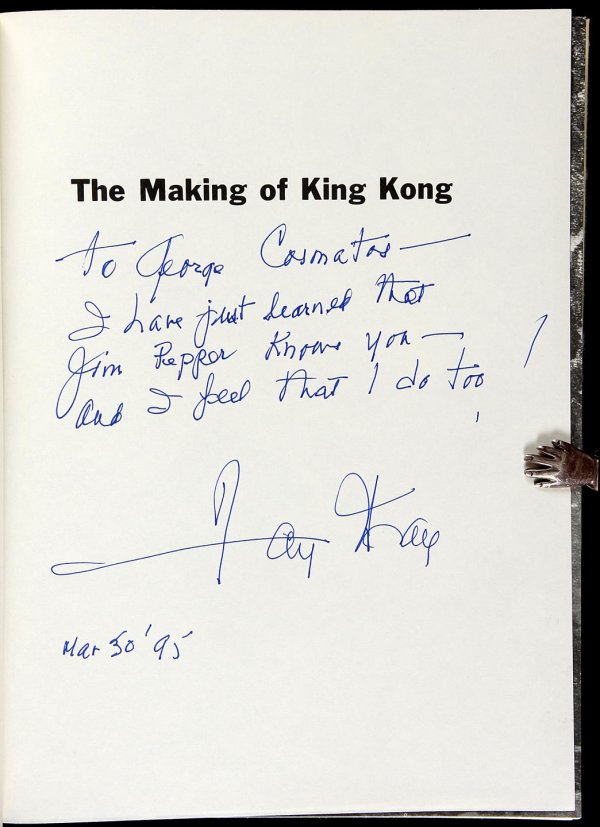 The Making of King Kong
To George Cosmatos —
I have just learned that
Jim Pepper knows you —
and I feel that I do too !
Fay Wray
Mar 30 '95